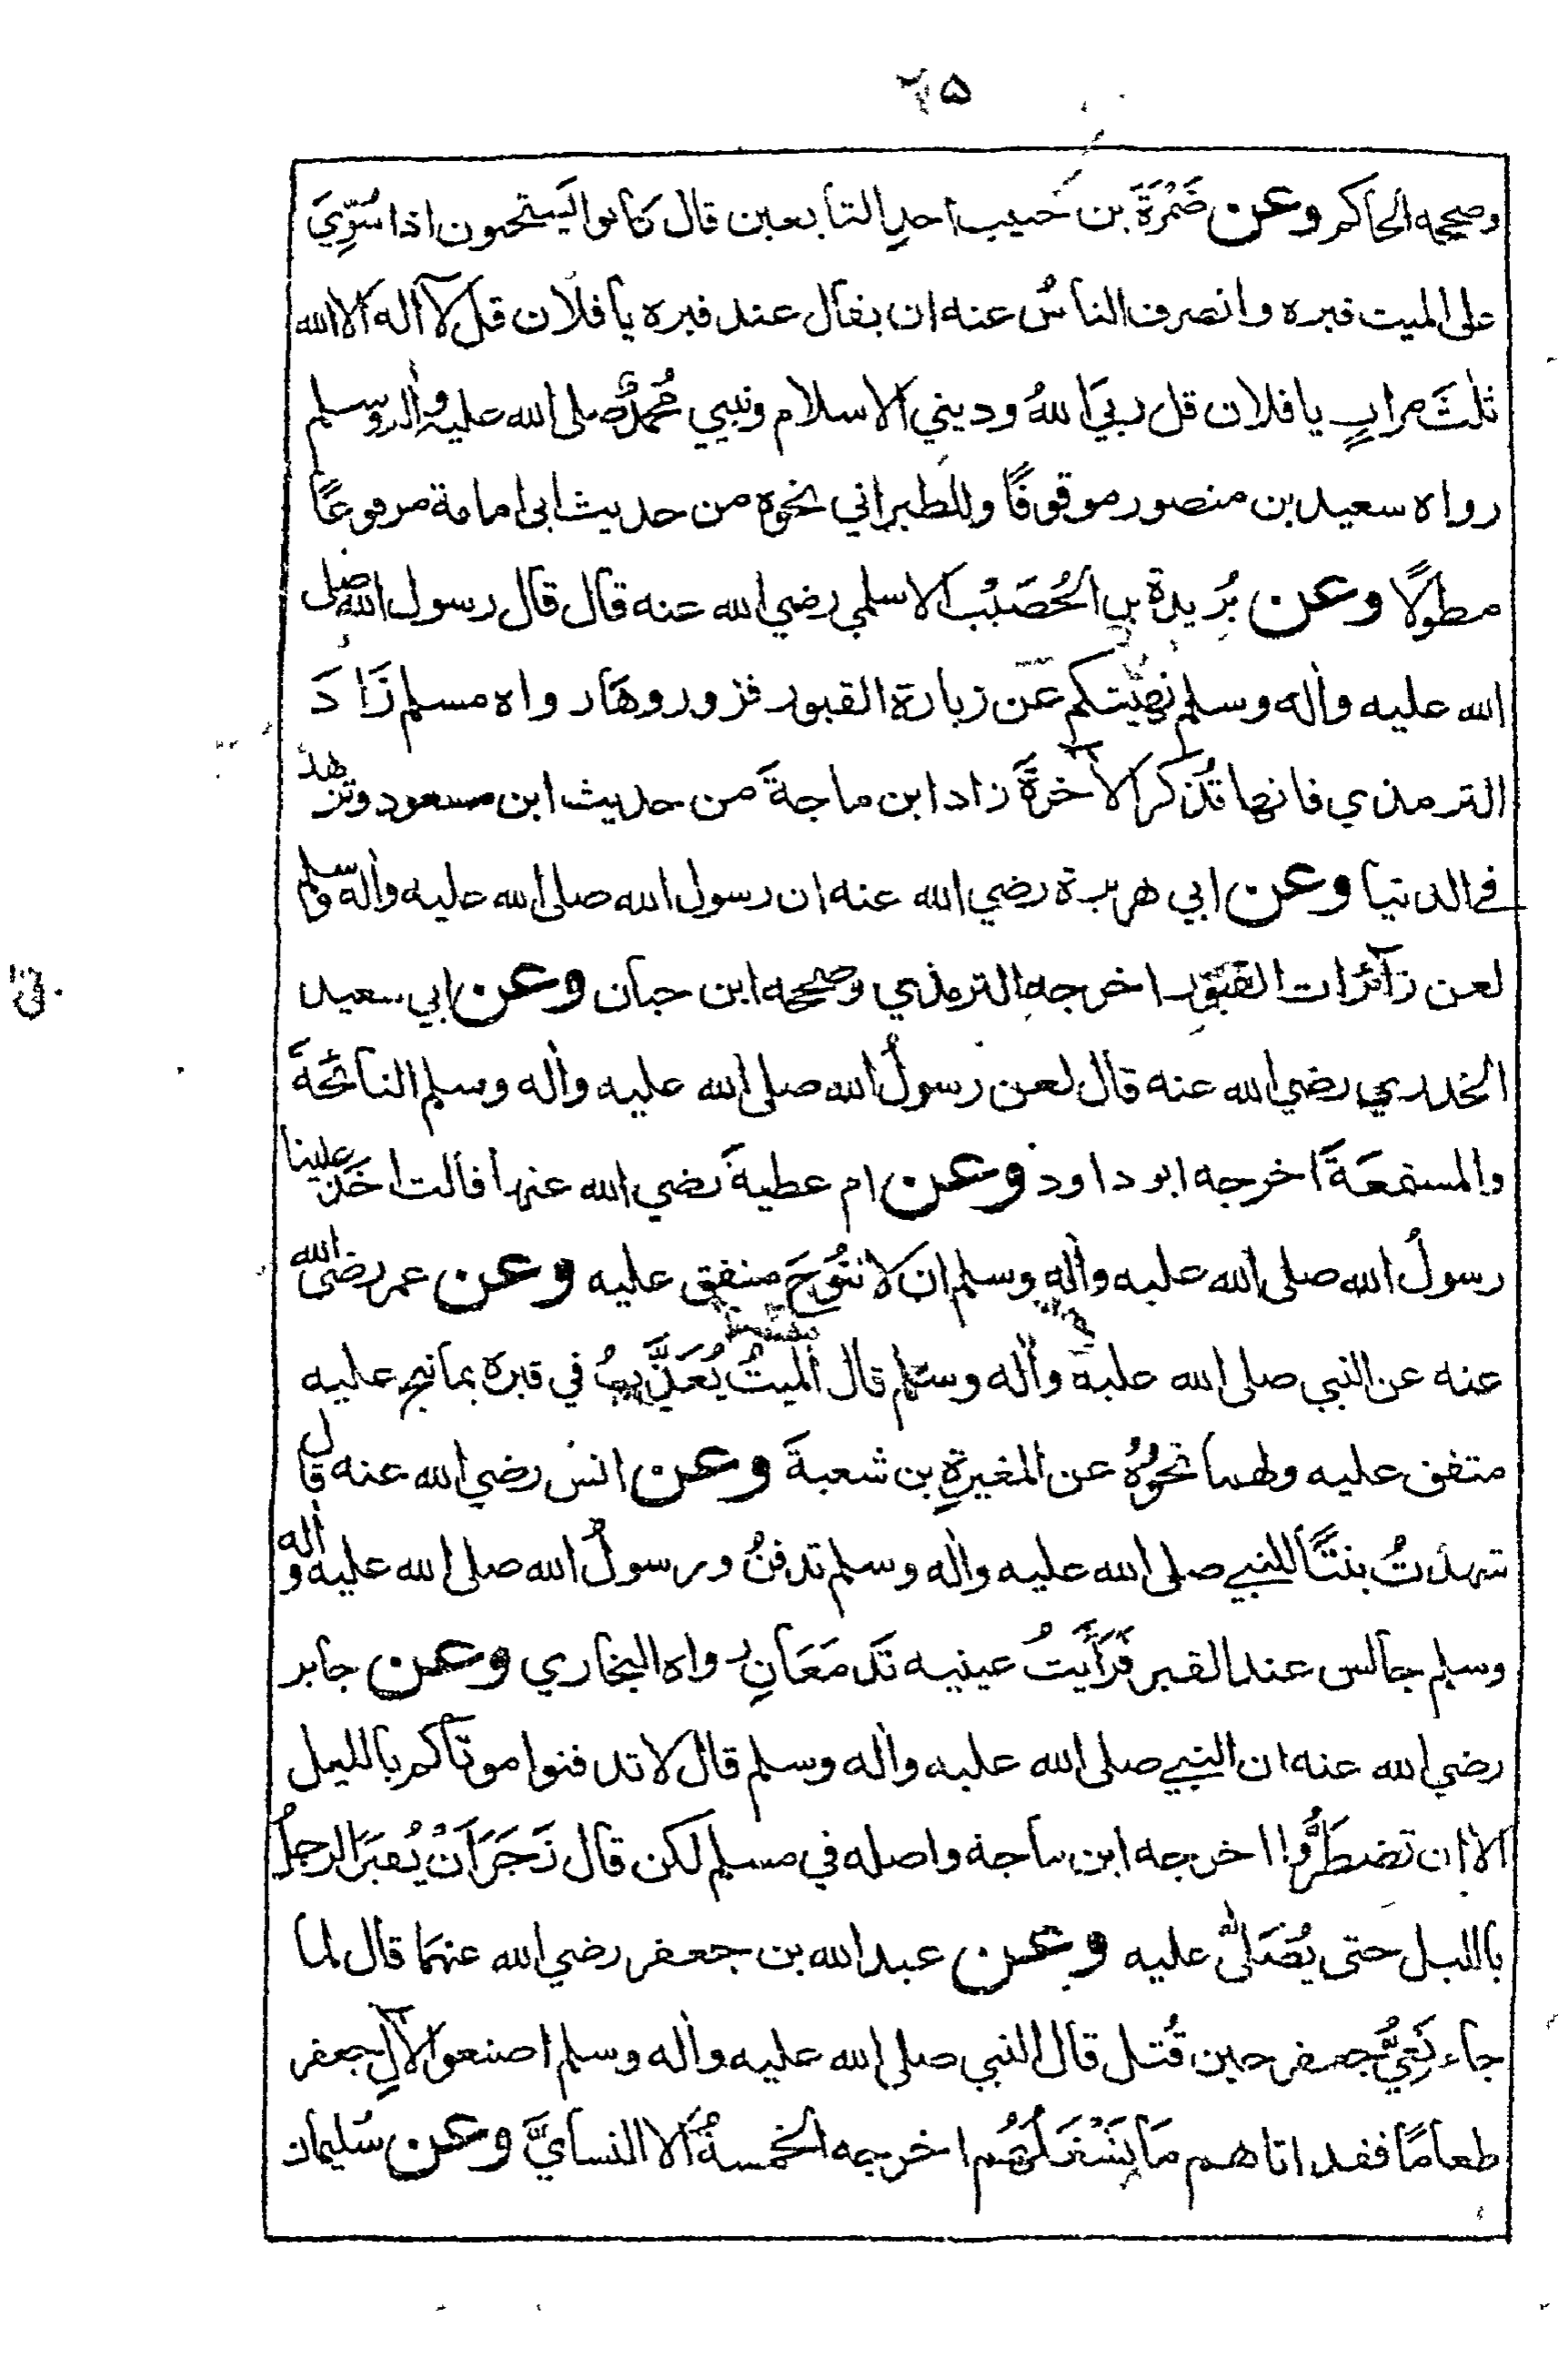 ٦٥
وصححه الحاكم وعن ضَمْرَةَ بن حبيب احدِ التابعين قال كانوا يستحبون اذا سُوِّيَ
على الميت قبره وانصرف الناسُ عنه ان يقال عند قبره يا فلان قل لا آله الا الله
ثلٰثَ مراتٍ يا فلان قل ربيَ اللهُ وديني الاسلام ونبيي مُحمدٌ صلى الله عليه واٰله وسلم
رواه سعيد بن منصور موقوفًا وللطبراني نحوه من حديث ابى امامة مرفوعًا
مطولًا وعن بُريدة بن الحُصَيْب الاسلمي رضي الله عنه قال قال رسول الله صلى
الله عليه واٰله وسلم نهيتكم عن زيارة القبور فزوروهَا رواه مسلم زَادَ
الترمذي فانها تُذكر الآخرةَ زاد ابن ماجةَ من حديث ابن مسعود وتزهد
في الدنيا وعن ابي هريرة رضي الله عنه ان رسول الله صلى الله عليه واٰله وسلم
لعن زآئرات القبور اخرجه الترمذي وصححه ابن حبان وعن ابي سعيد
الخدري رضي الله عنه قال لعن رسولُ الله صلى الله عليه واٰله وسلم النائحةَ
والمستمعَةَ اخرجه ابو داود وعن ام عطيةَ رضي الله عنها قالت اخَذَ علينا
رسولُ الله صلى الله عليه واٰله وسلم ان لا ننُوحَ متفق عليه وعن عمر رضى الله
عنه عن النبي صلى الله عليه واٰله وسلم قال الميتُ يُعَذَّبُ في قبره بما نيح عليه
متفق عليه ولهما نحوُهُ عن المغيرةِ بن شعبةَ وعن انس رضي الله عنه قال
شهدتُ بنتًا للنبي صلى الله عليه واٰله وسلم تدفنُ ورسولُ الله صلى الله عليه واٰله
وسلم جالس عند القبر فَرَأَيتُ عينيه تَدمَعَانِ رواه البخاري وعن جابر
رضي الله عنه ان النبي صلى الله عليه واٰله وسلم قال لا تدفنوا موتاكم بالليل
الا ان تضطَرُّوا اخرجه ابن ماجة واصله في مسلم لكن قال زَجَرَ اَنْ يُقبَرَ الرجلُ
بالليل حتى يُصَلَّى عليه وعن عبد الله بن جعفر رضي الله عنهمَا قال لما
جاء نَعِيُّ جعفر حين قُتل قال النبي صلى الله عليه واٰله وسلم اصنعوا لآلِ جعفر
طعامًا فقد اتاهم مَا يَشْغَلُهُم اخرجه الخمسةُ الا النسايَّ وعن سُليمان